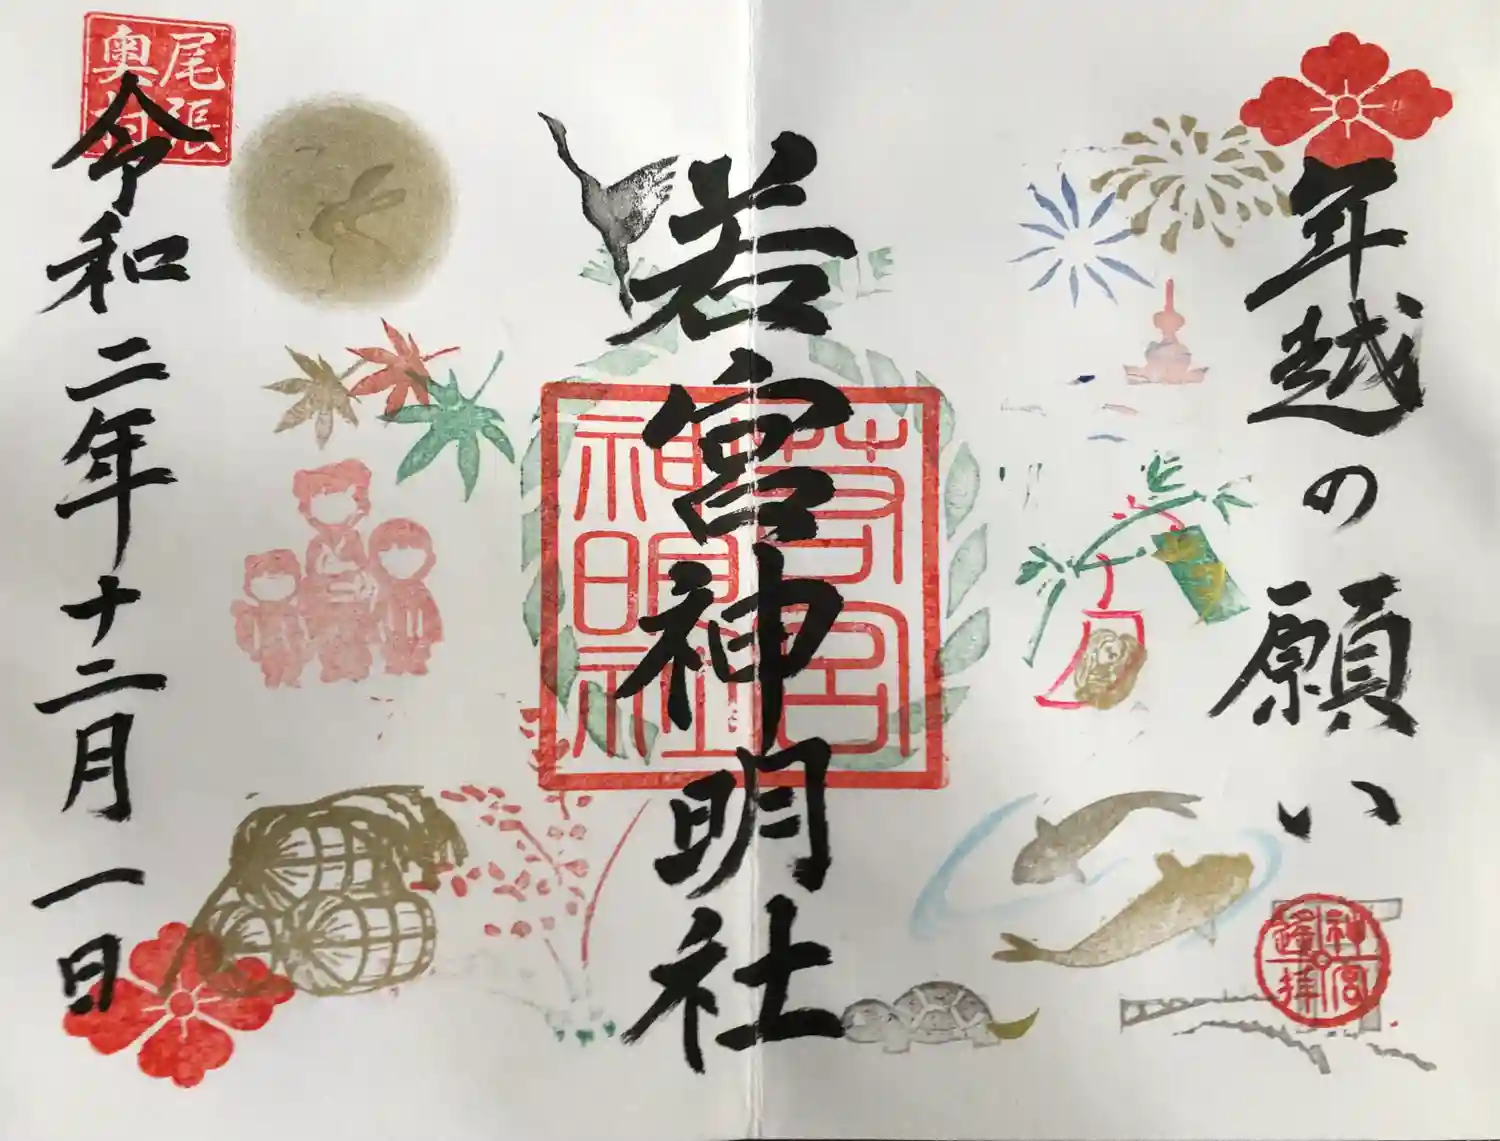 年越の願い
神宮
遙拝
若宮神明社
若宮
神明社
尾張
奥村
令和二年十二月一日